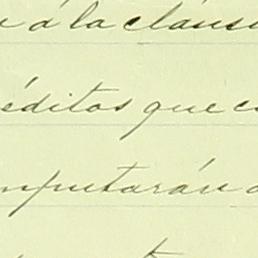 á la cláus
éditos que c
mputarán